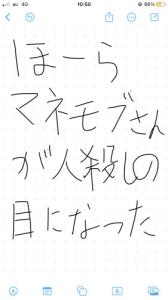 au 4G 10:50 66%
ほーら
マネモブさん
が人殺しの
目になった